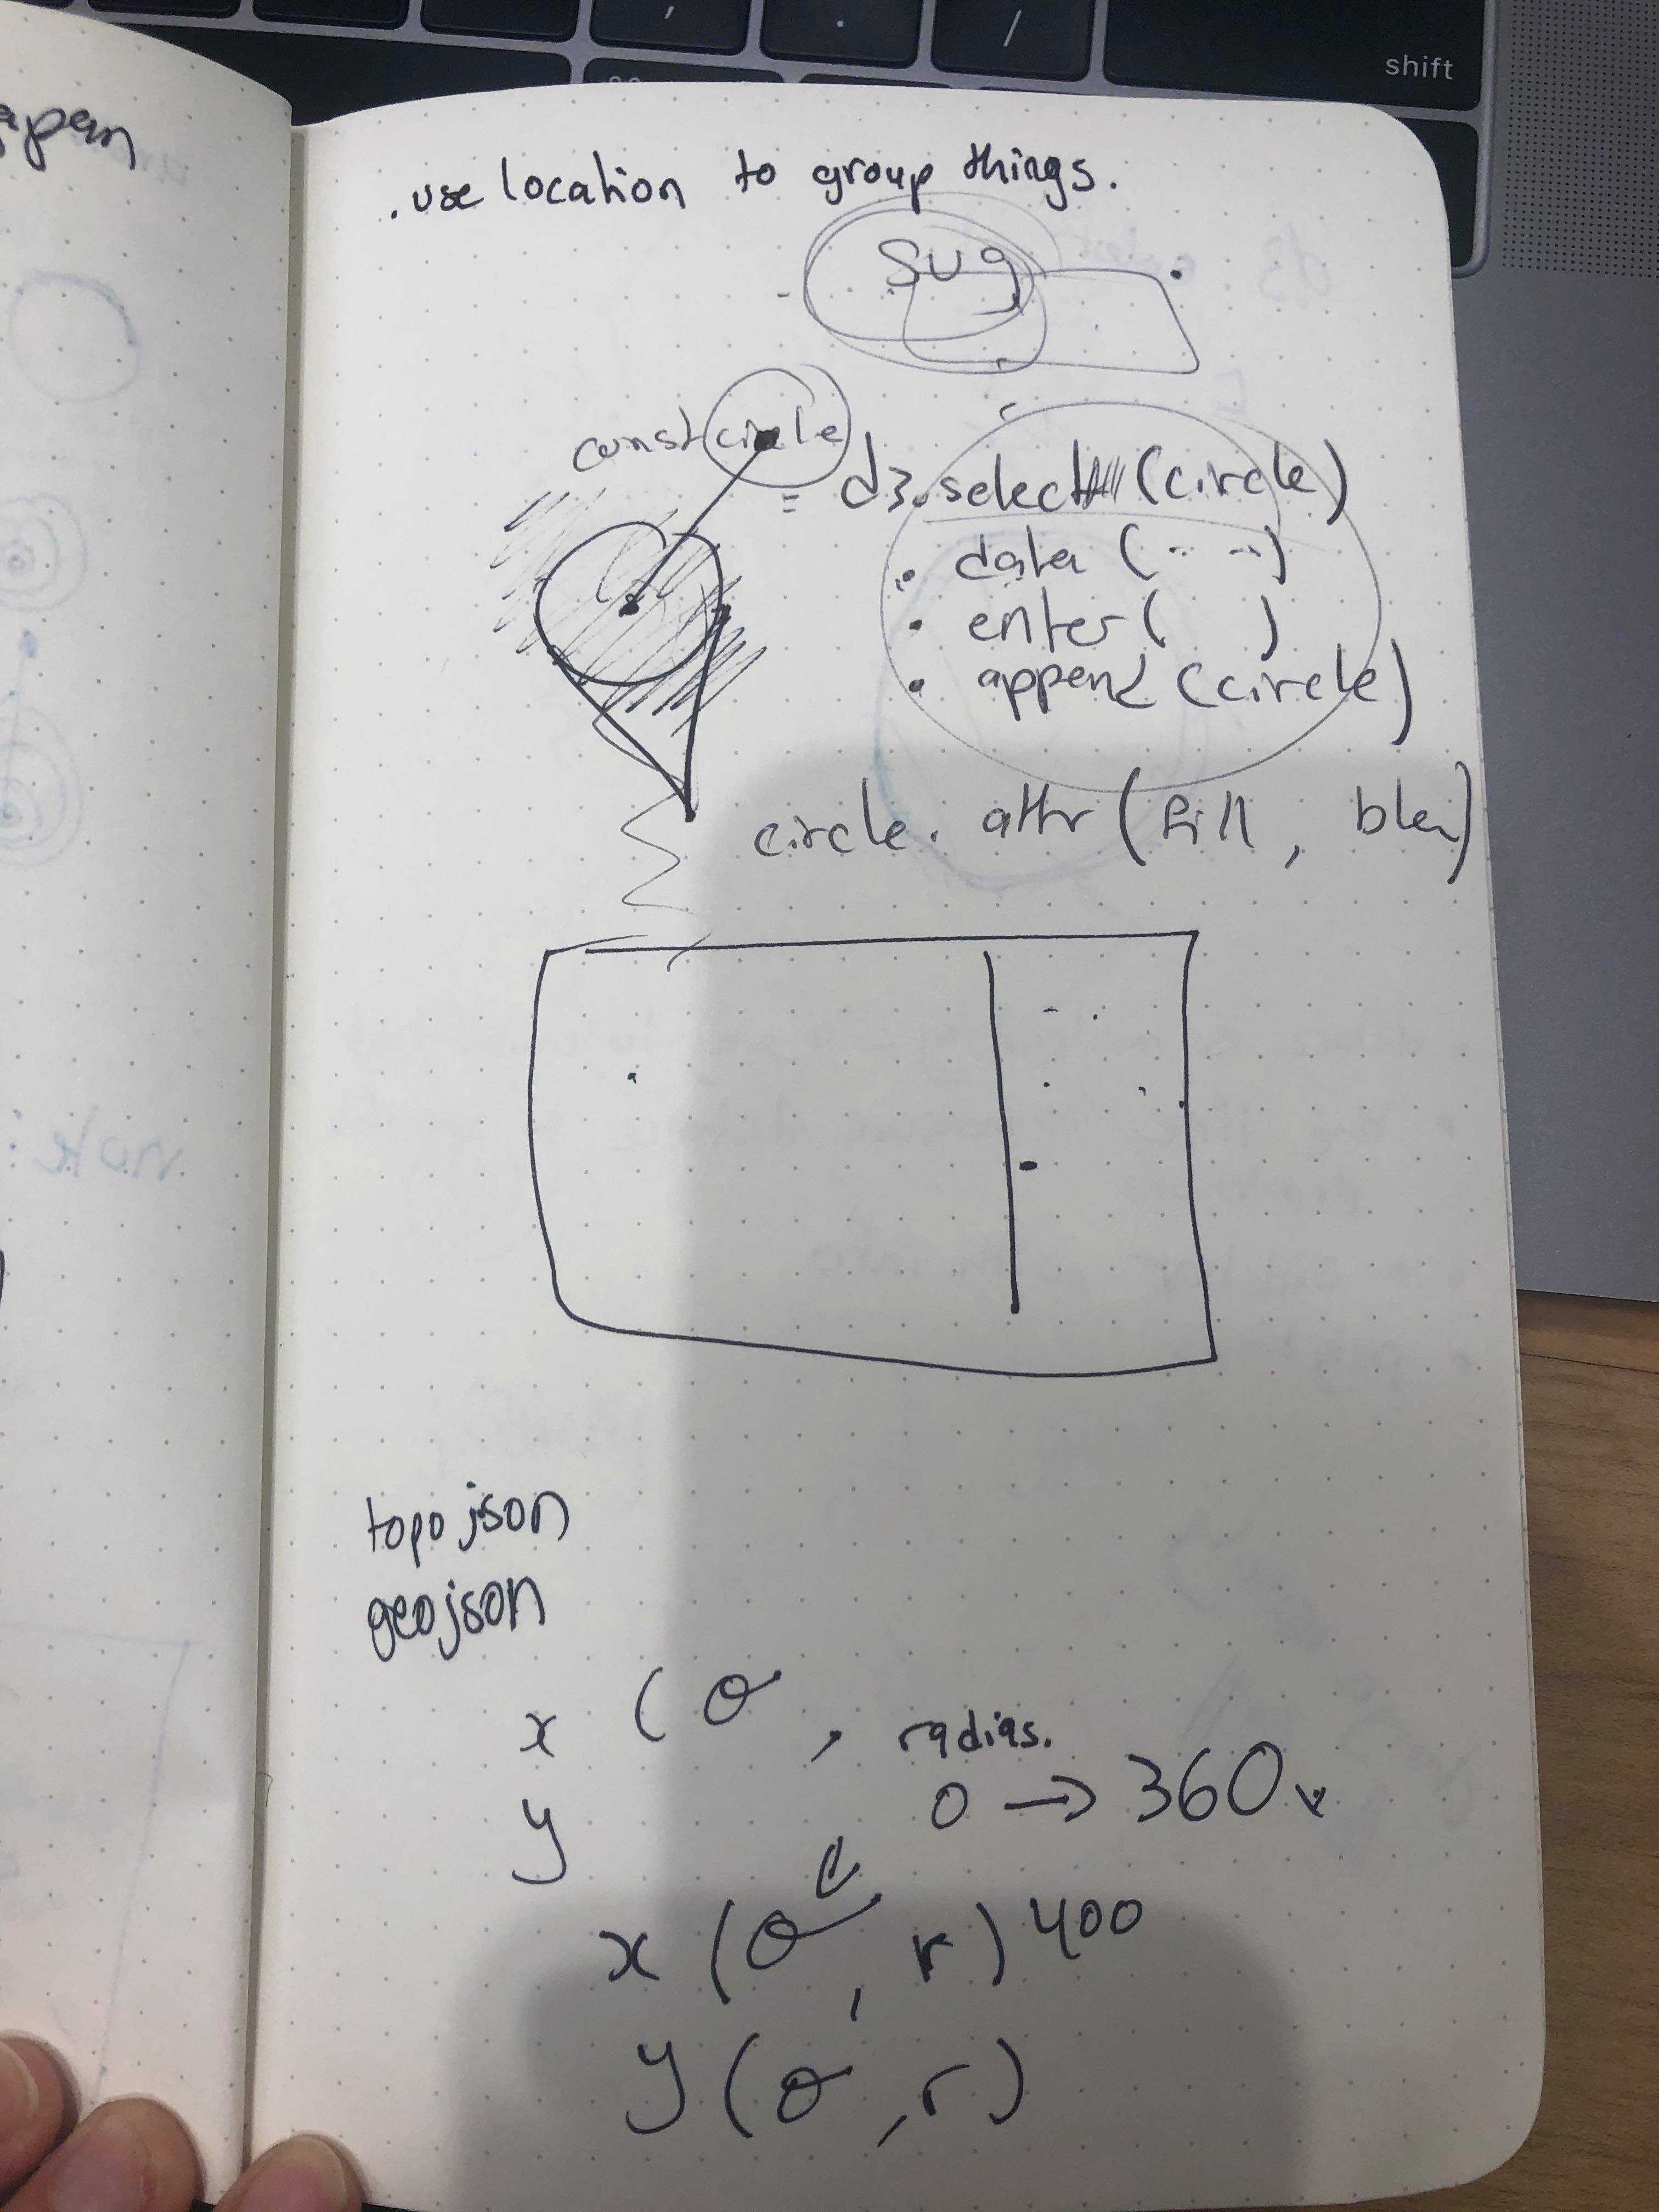 apan
, . /
shift
. use location to group things.
svg
const circle
= d3.select (circle)
. data (.. ..)
. enter ( )
. append (circle)
circle. attr (fill,
topojson
geojson
x (θ, radias.
y 0 → 360
x (θ, r) 400
y (θ, r)
note: